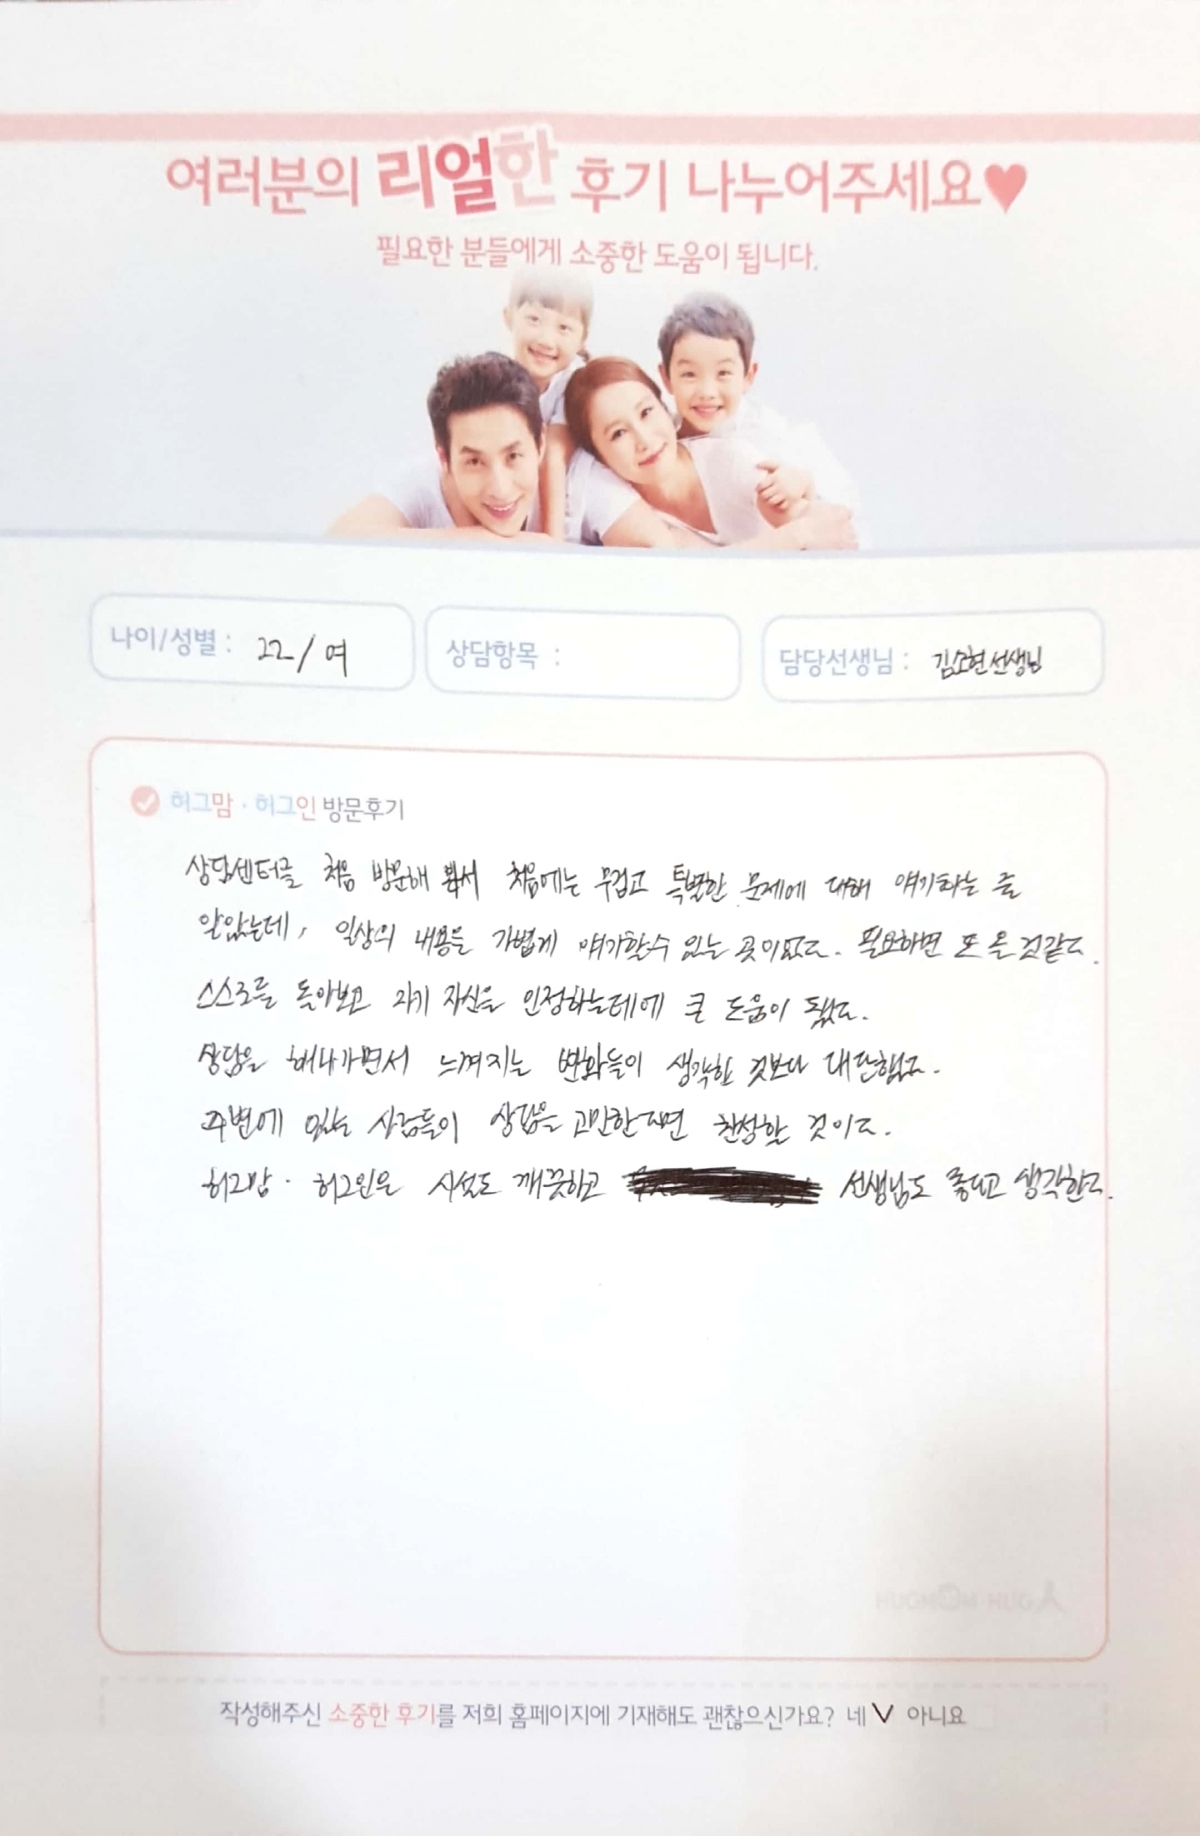 여러분의 리얼한 후기 나누어주세요♥
필요한 분들에게 소중한 도움이 됩니다.
나이/성별 : 22/여
상담항목 :
담당선생님 : 김소현선생님
허그맘·허그인 방문후기
상담센터를 처음 방문해 봐서 처음에는 무겁고 특별한 문제에 대해 얘기하는 줄
알았는데, 일상의 내용을 가볍게 얘기할수 있는 곳이었다. 필요하면 또 올 것같다.
스스로를 돌아보고 자기 자신을 인정하는데에 큰 도움이 됐다.
상담을 해나가면서 느껴지는 변화들이 생각한 것보다 대단했다.
주변에 있는 사람들이 상담을 고민한다면 찬성할 것이다.
허그맘·허그인은 시설도 깨끗하고 선생님도 좋다고 생각한다.
작성해주신 소중한 후기를 저희 홈페이지에 기재해도 괜찮으신가요? 네 V 아니요